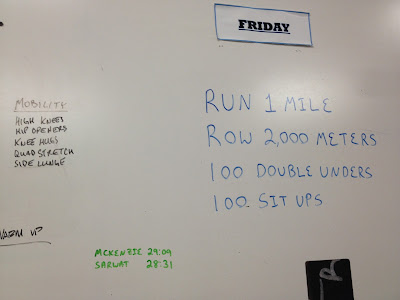 FRIDAY
MOBILITY
HIGH KNEES
HIP OPENERS
KNEE HUGS
QUAD STRETCH
SIDE LUNGE
WARM UP
RUN 1 MILE
ROW 2,000 METERS
100 DOUBLE UNDERS
100 SIT UPS
MCKENZIE 29:09
SARWAT 28:31